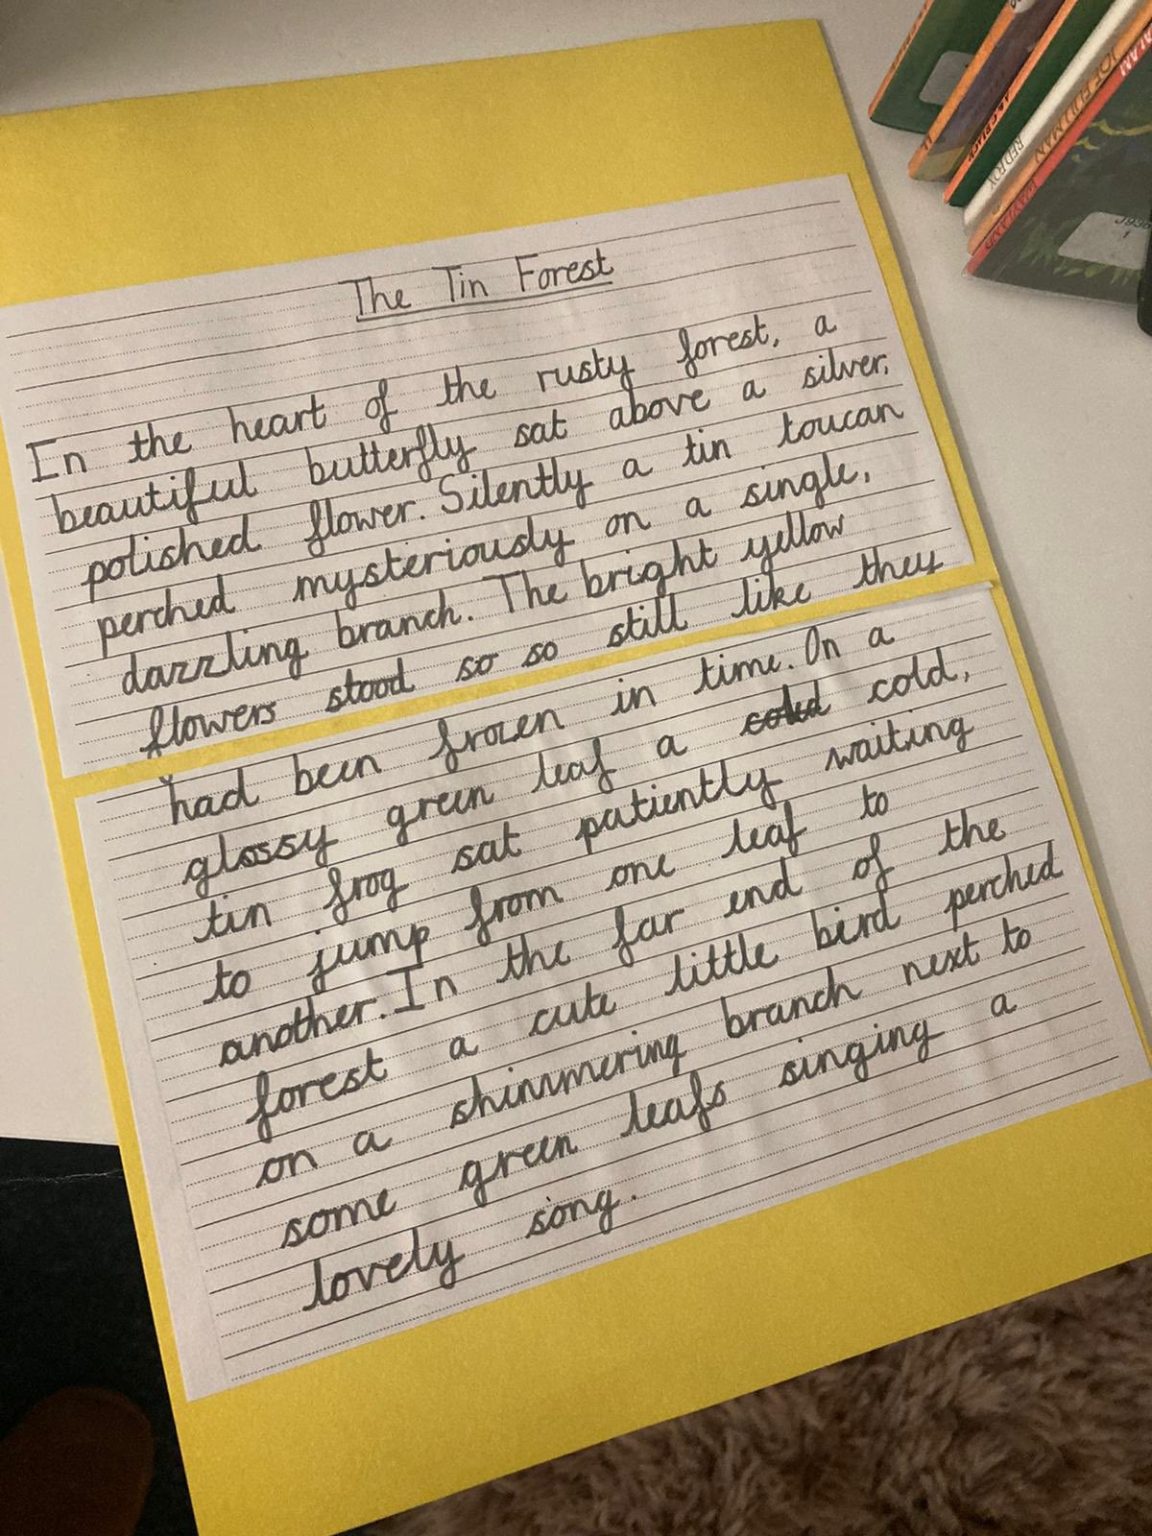 The Tin Forest
In the heart of the rusty forest, a
beautiful butterfly sat above a silver,
polished flower. Silently a tin toucan
perched mysteriously on a single,
dazzling branch. The bright yellow
flowers stood so so still like they
had been frozen in time. On a
glossy green leaf a cold,
tin frog sat patiently waiting
to jump from one leaf to
another. In the far end of the
forest a cute little bird perched
on a shimmering branch next to
some green leafs singing a
lovely song.
JOE FULLMAN
REDROX
WAYLAND